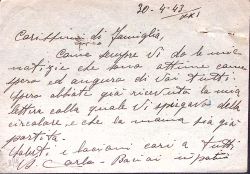 30-4-43
XXI
Carissimi di famiglia,
Come sempre vi do le mie
notizie che sono ottime come
spero ed auguro di voi tutti.
Spero abbiate già ricevuta la mia
lettera colla quale vi spiegavo della
circolare, e che la mamma sia già
partita.
Saluti, i bacioni cari a tutti
Carlo - Bacioni